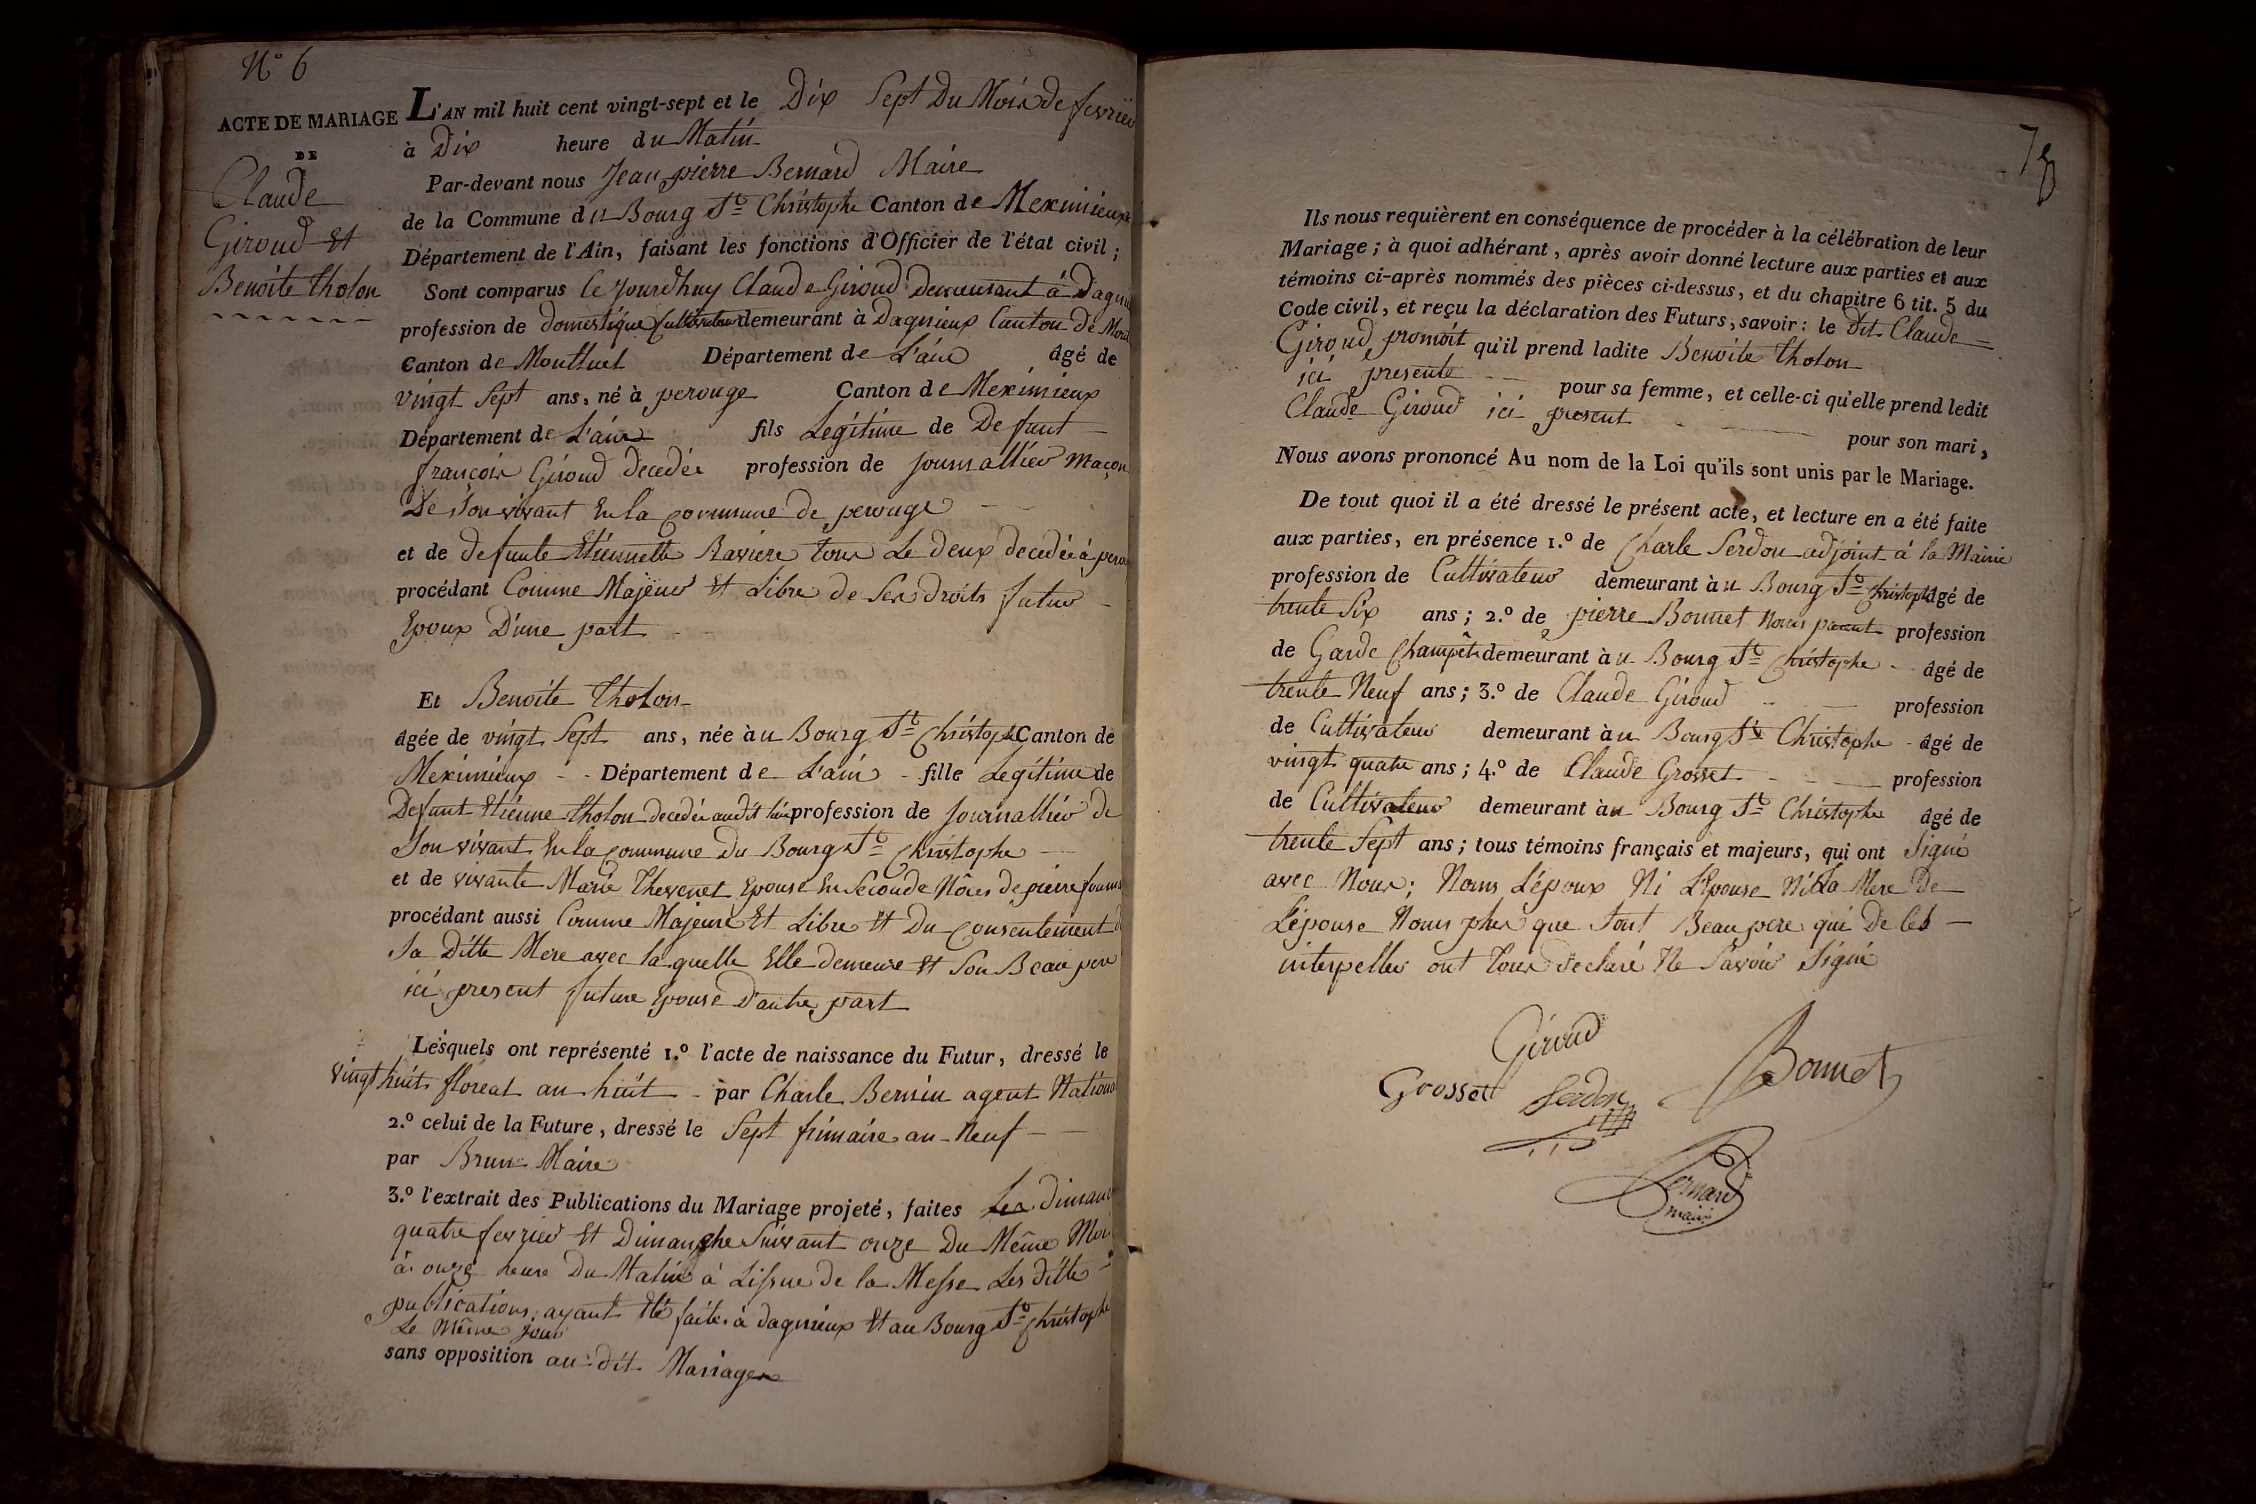 N° 6
ACTE DE MARIAGE
DE
Claude
Giroud Et
Benoite tholon
L'AN mil huit cent vingt-sept et le Dix Sept Du Mois de fevrier
à Dix heure du Matin
Par-devant nous Jean pierre Bernard Maire
de la Commune du Bourg St Christophe Canton de Meximieux
Département de l'Ain, faisant les fonctions d'Officier de l'état civil ;
Sont comparus Ce jourdhuy Claude Giroud Demeurant à Dagnieu
profession de domestique Cultivateur demeurant à Dagnieux Canton de Mont
Canton de Montluel Département de L'ain âgé de
vingt Sept ans, né à perouge Canton de Meximieux
Département de L'ain fils Legitime de Defunt
francois Giroud decedée profession de journallier Maçon
De Son vivant En la commune de perouge
et de defunte Etiennette Raviere tous Le deux decedée à perou
procédant Comme Majeur Et Libre de Ses droits futur
Epoux D'une part
Et Benoite tholon
âgée de vingt Sept ans, née àu Bourg St Christophe Canton de
Meximieux Département de L'ain fille Legitime de
Defunt Etienne tholon decedée audit lieu profession de journallier de
Son vivant En la commune Du Bourg St Christophe
et de vivante Marie thevenet Epouse En Seconde Nôces de pierre
procédant aussi Comme Majeure Et Libre Et Du consentement d
Sa Ditte Mere avec la quelle Elle demeure Et Son Beau pere
ici present future Epouse D'autre part
Lesquels ont représenté 1.° l'acte de naissance du Futur, dressé le
vingt huit floreal an huit par Charle Bernin agent National
2.° celui de la Future, dressé le Sept frimaire an Neuf
par Brun Maire
3.° l'extrait des Publications du Mariage projeté, faites Les dimanc
quatre fevrier Et Dimanche Suivant onze Du Même Moi
à onze heure Du Matin à Lissue de la Messe Les ditte
publications ayant Eté faite à dagnieux Et au Bourg St Christophe
Le Même jour
sans opposition au dit Mariage
78
Ils nous requièrent en conséquence de procéder à la célébration de leur
Mariage ; à quoi adhérant, après avoir donné lecture aux parties et aux
témoins ci-après nommés des pièces ci-dessus, et du chapitre 6 tit. 5 du
Code civil, et reçu la déclaration des Futurs, savoir : le dit Claude
Giroud promoit qu'il prend ladite Benoite tholon
ici presente pour sa femme, et celle-ci qu'elle prend ledit
Claude Giroud ici present pour son mari,
Nous avons prononcé Au nom de la Loi qu'ils sont unis par le Mariage.
De tout quoi il a été dressé le présent acte, et lecture en a été faite
aux parties, en présence 1.° de Charle Serdon adjoint à la Mairie
profession de Cultivateur demeurant àu Bourg St Christophe âgé de
trente Six ans ; 2.° de pierre Bonnet Nom parent profession
de Garde Champêtre demeurant àu Bourg St Christophe âgé de
trente Neuf ans ; 3.° de Claude Giroud profession
de Cultivateur demeurant àu Bourg St Christophe âgé de
vingt quatre ans ; 4.° de Claude Grosset profession
de Cultivateur demeurant àu Bourg St Christophe âgé de
trente Sept ans ; tous témoins français et majeurs, qui ont Signé
avec Nous ; Nom L'époux Ni L'Epouse Ni La Mere De
L'épouse Nom plus que Sont Beau pere qui De Ces
interpeller ont tous declaré Ne Savoir Signé
Giroud
Bonnet
Grosset
Serdon
Bernard
maire